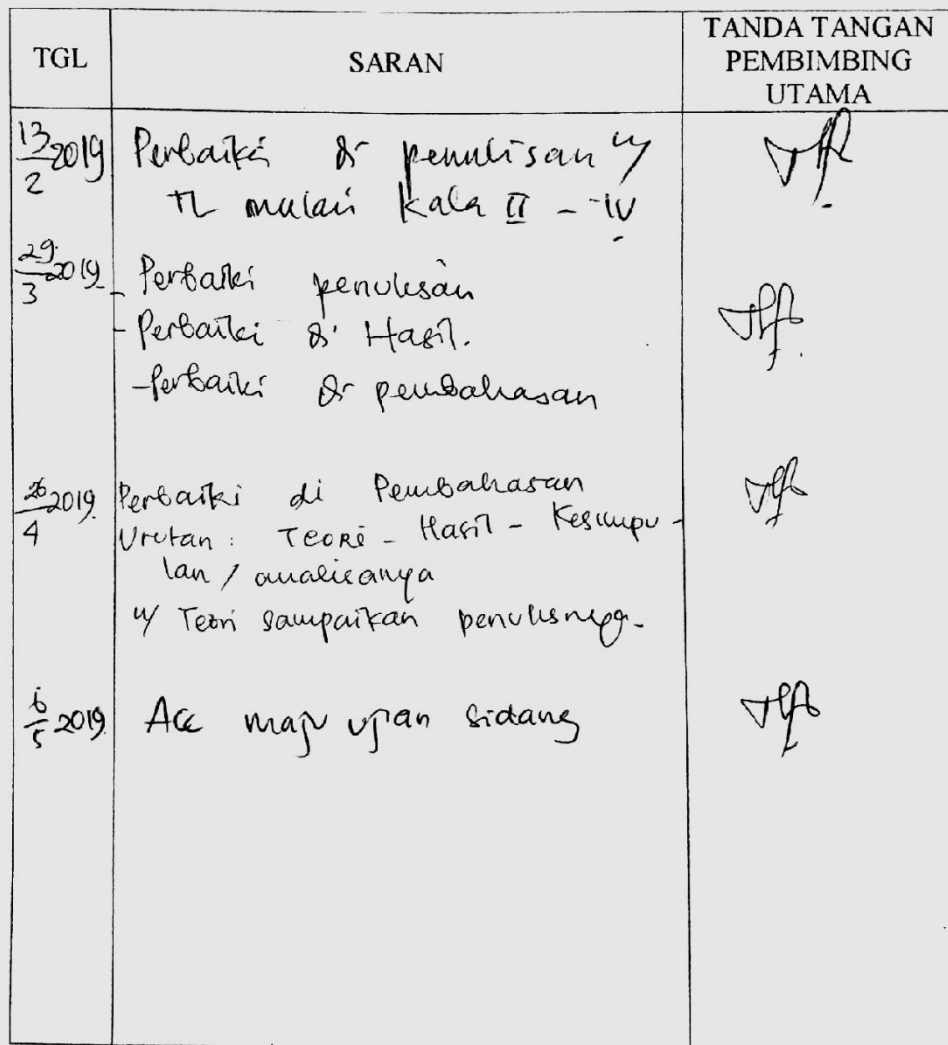 TGL
SARAN
TANDA TANGAN
PEMBIMBING
UTAMA
13/2 2019 Perbaiki di penulisan u/
TL mulai Kala II - IV
29/3 2019 - Perbaiki penulisan
- Perbaiki di Hasil.
- Perbaiki di pembahasan
26/4 2019 Perbaiki di Pembahasan
Urutan : Teori - Hasil - Kesimpu -
lan / analisanya
u/ Teori sampaikan
6/5 2019 Acc maju ujian sidang